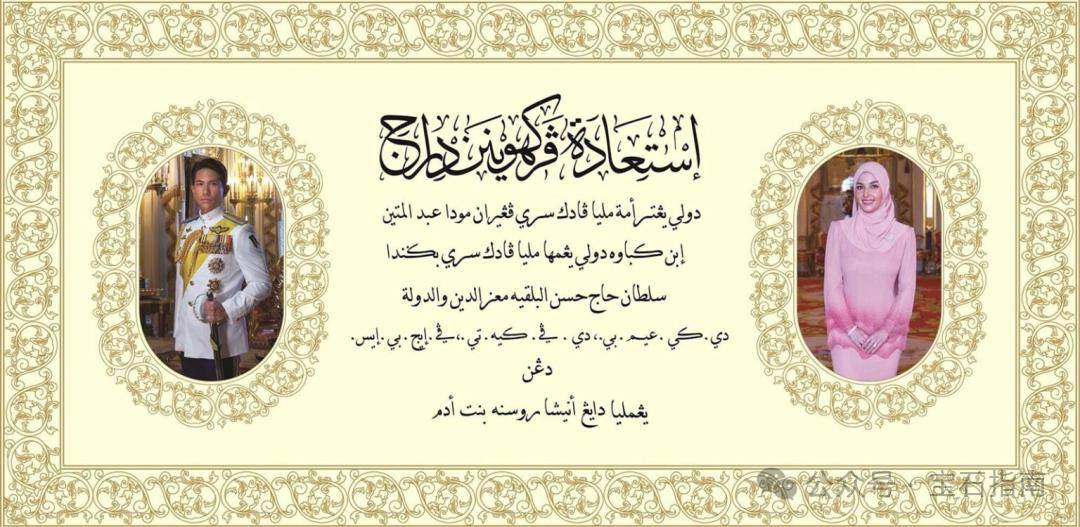 إستعادة ڤركهوينن دراج
دولي يڠتر أمة مليا ڤادك سري ڤڠيران مودا عبد المتين
إبن كباوه دولي يڠمها مليا ڤادك سري بڬندا
سلطان حاج حسن البلقيه معزالدين والدولة
دي.كي . عيم . بي،. دي . ڤي . كيه . تي،. ڤي . إيچ . بي . إيس.
دڠن
يڠمليا دايڠ أنيشا روسنه بنت أدم
公众号 · 宝石指南